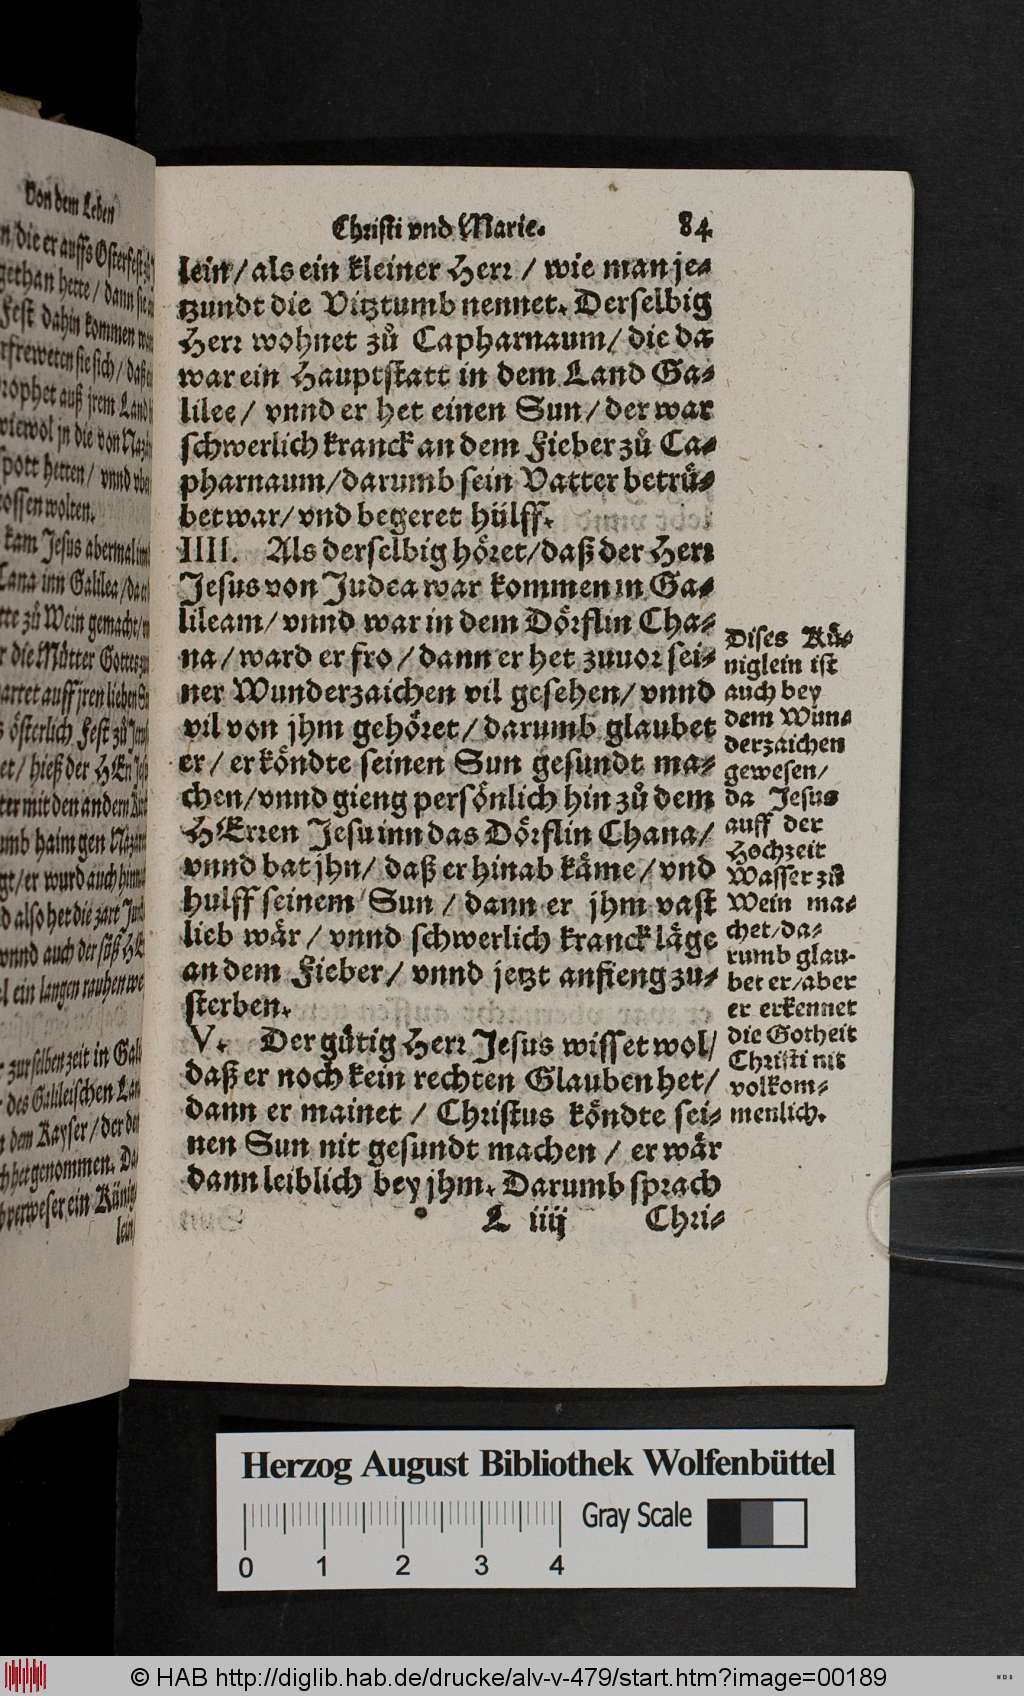 Von dem Leben
die er auffs Osterfest
gethan hette / dann sie
Fest dahin kommen
erfreweten sie sich / daß
Prophet auß jrem Land
wiewol jn die von
spott hetten / vnnd
stossen wolten.
kam Jesus abermal
Cana inn Galilea / da
zů Wein gemacht /
die Můtter Gottes
wartet auff jren lieben
österlich Fest zů
hieß der HErr
mit den andern
haim gen
er wurd auch
also het die zart
vnnd auch der süß
ein langen rauhen
zur selben zeit in
des Galileischen
dem Kayser / der
het genommen.
ein
lein
Christi vnd Marie. 84
lein / als ein kleiner Herr / wie man je-
tzundt die Vitztumb nennet. Derselbig
Herr wohnet zů Capharnaum / die da
war ein Hauptstatt in dem Land Ga-
lilee / vnnd er het einen Sun / der war
schwerlich kranck an dem Fieber zů Ca-
pharnaum / darumb sein Vatter betrü-
bet war / vnd begeret hülff.
IIII. Als derselbig höret / daß der Herr
Jesus von Judea war kommen in Ga-
lileam / vnnd war in dem Dörflin Cha-
na / ward er fro / dann er het zuuor sei-
ner Wunderzaichen vil gesehen / vnnd
vil von jhm gehöret / darumb glaubet
er / er köndte seinen Sun gesundt ma-
chen / vnnd gieng persönlich hin zů dem
HErren Jesu inn das Dörflin Chana /
vnnd bat jhn / daß er hinab käme / vnd
hulff seinem Sun / dann er jhm vast
lieb wär / vnnd schwerlich kranck läge
an dem Fieber / vnnd jetzt anfieng zu-
sterben.
V. Der gütig Herr Jesus wisset wol /
daß er noch kein rechten Glauben het /
dann er mainet / Christus köndte sei-
nen Sun nit gesundt machen / er wär
dann leiblich bey jhm. Darumb sprach
L iiij Chri-
Dises Kü-
niglein ist
auch bey
dem Wun-
derzaichen
gewesen /
da Jesus
auff der
Hochzeit
Wasser zů
Wein ma-
chet / da-
rumb glau-
bet er / aber
er erkennet
die Gotheit
Christi nit
volkom-
menlich.
Herzog August Bibliothek Wolfenbüttel
Gray Scale
0 1 2 3 4
© HAB http://diglib.hab.de/drucke/alv-v-479/start.htm?image=00189